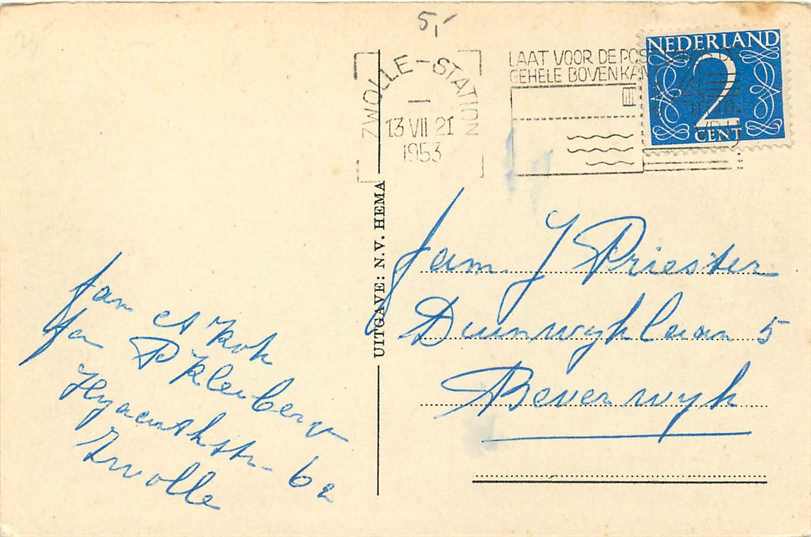 5,-
ZWOLLE-STATION
13 VII 21
1953
LAAT VOOR DE POS
GEHELE BOVENKAN
NEDERLAND
2
CENT
UITGAVE: N.V. HEMA
fam. J Priester
Duinwyklaan 5
Beverwyk
fam A Kok
fa P Kleiberg
Hyacinthstr- 62
Zwolle